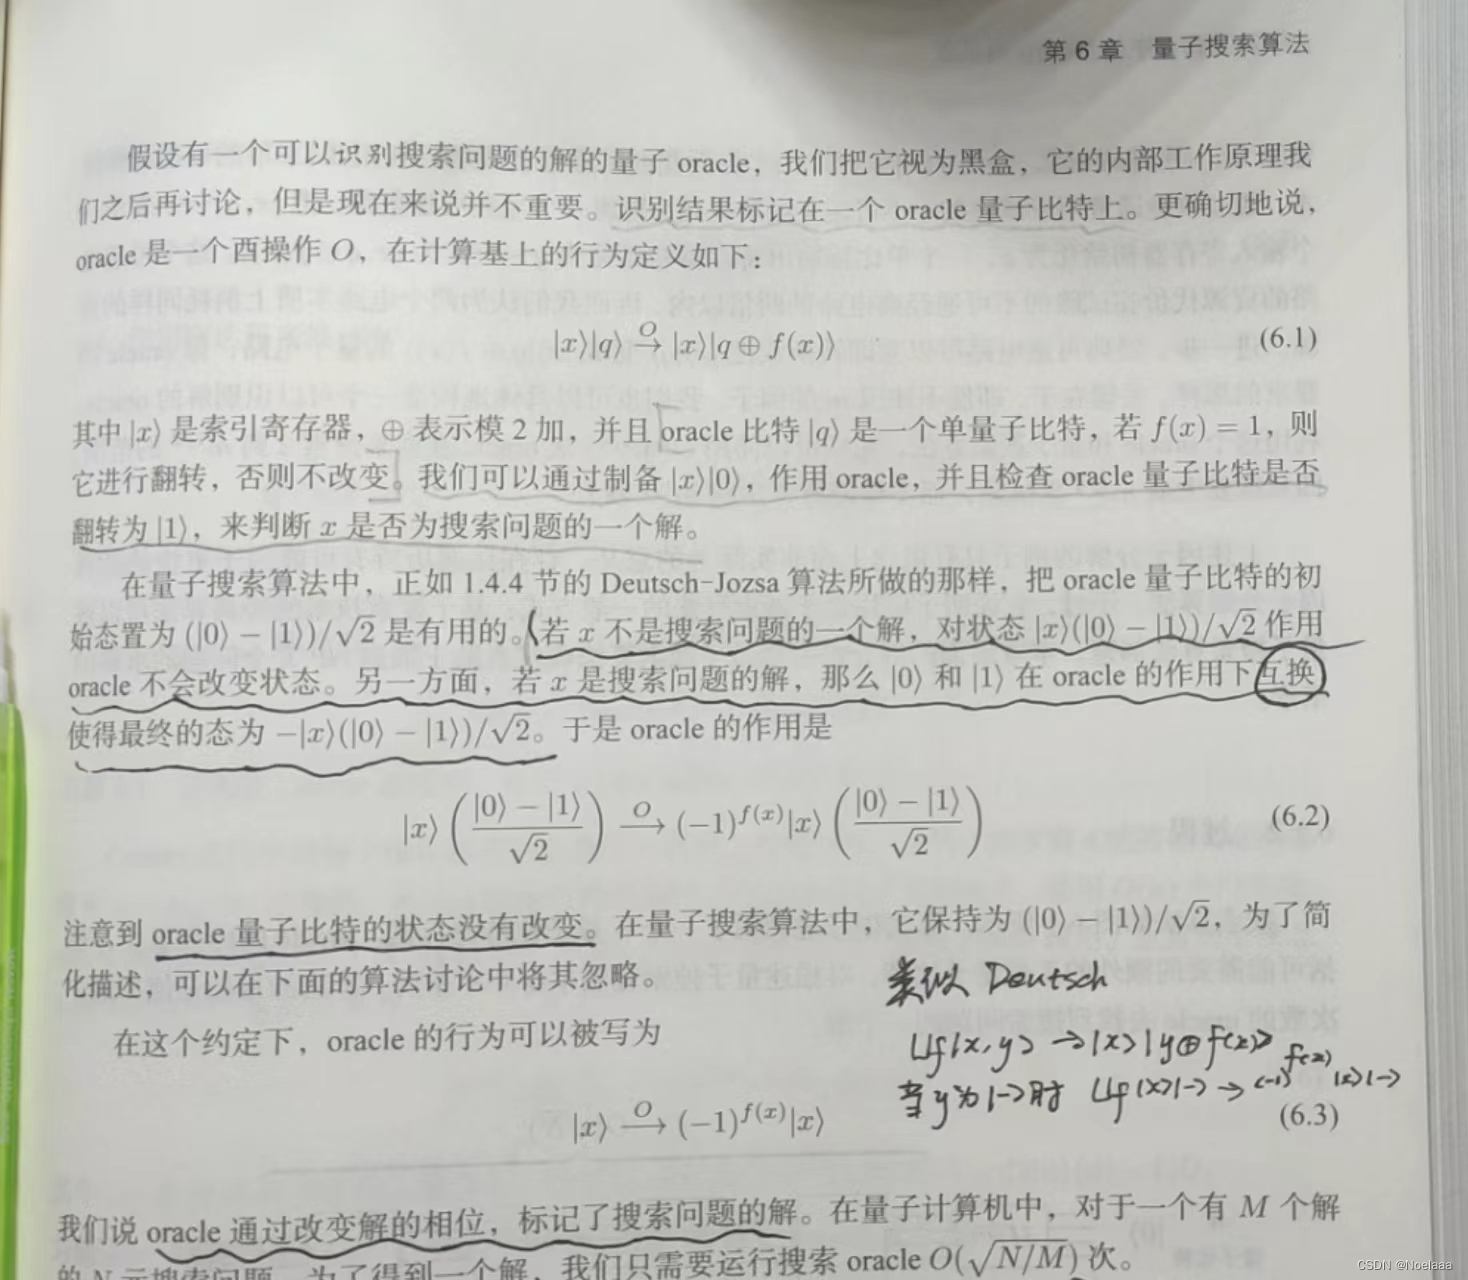 第 6 章 量子搜索算法
假设有一个可以识别搜索问题的解的量子 oracle，我们把它视为黑盒，它的内部工作原理我
们之后再讨论，但是现在来说并不重要。识别结果标记在一个 oracle 量子比特上。更确切地说，
oracle 是一个酉操作 O，在计算基上的行为定义如下：
|x⟩|q⟩ →ᴼ |x⟩|q ⊕ f(x)⟩ (6.1)
其中 |x⟩ 是索引寄存器，⊕ 表示模 2 加，并且 oracle 比特 |q⟩ 是一个单量子比特，若 f(x) = 1，则
它进行翻转，否则不改变。我们可以通过制备 |x⟩|0⟩，作用 oracle，并且检查 oracle 量子比特是否
翻转为 |1⟩，来判断 x 是否为搜索问题的一个解。
在量子搜索算法中，正如 1.4.4 节的 Deutsch–Jozsa 算法所做的那样，把 oracle 量子比特的初
始态置为 (|0⟩ − |1⟩)/√2 是有用的。(若 x 不是搜索问题的一个解，对状态 |x⟩(|0⟩ − |1⟩)/√2 作用
oracle 不会改变状态。另一方面，若 x 是搜索问题的解，那么 |0⟩ 和 |1⟩ 在 oracle 的作用下互换
使得最终的态为 −|x⟩(|0⟩ − |1⟩)/√2。于是 oracle 的作用是
|x⟩ ((|0⟩ − |1⟩)/√2) →ᴼ (−1)^f(x) |x⟩ ((|0⟩ − |1⟩)/√2) (6.2)
注意到 oracle 量子比特的状态没有改变。在量子搜索算法中，它保持为 (|0⟩ − |1⟩)/√2，为了简
化描述，可以在下面的算法讨论中将其忽略。
类似 Deutsch
在这个约定下，oracle 的行为可以被写为
Uf|x,y> → |x>|y⊕f(x)>
当y为|->时 Uf|x>|-> → (-1)^f(x) |x>|->
|x⟩ →ᴼ (−1)^f(x) |x⟩ (6.3)
我们说 oracle 通过改变解的相位，标记了搜索问题的解。在量子计算机中，对于一个有 M 个解
的 N 元搜索问题，为了得到一个解，我们只需要运行搜索 oracle O(√N/M) 次。
CSDN @Noelaaa